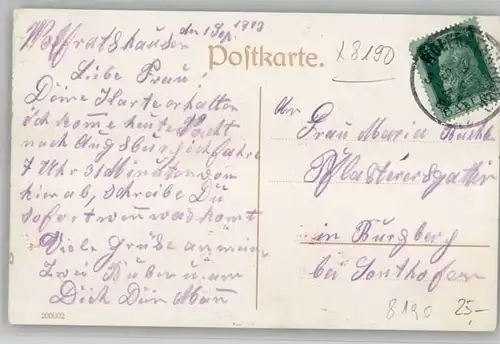 Wolfratshausen den 1 Sep. 1913
Postkarte.
x8190
Liebe Frau!
Deine Karte erhalten
ich kome heute Nacht
nach Augsburg ich fahre
7 Uhr 31 Minuten von
hier ab, schreibe Du
sofort wen was komt
Viele Grüße an meine
zwei Buben u. an
Dich Dein Man
An
Frau Maria
Pflasterersgattin
in Burgberg
bei Sonthofen
8190 25,-
200002